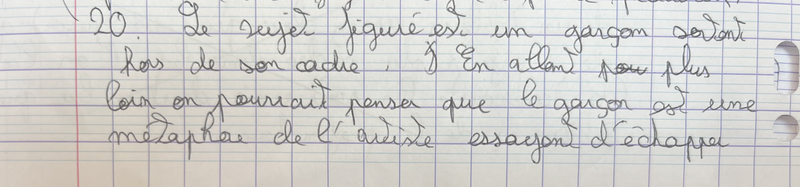 20. Le sujet figuré est un garçon sortant
hors de son cadre. En allant plus
loin on pourrait penser que le garçon est une
métaphore de l'artiste essayant d'échapper